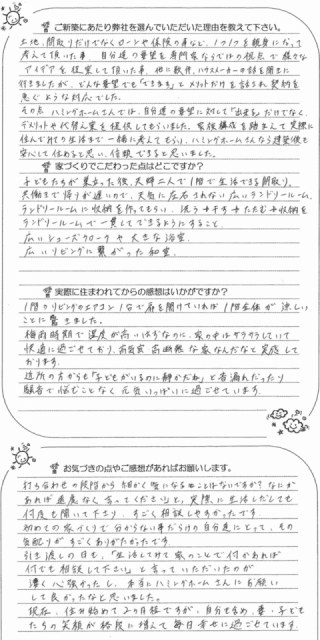 ご新築にあたり弊社を選んでいただいた理由を教えて下さい。
土地、間取りだけでなくローンや保険の事など、1つ1つを親身になって
考えて頂いた事、自分達の要望を専門家ならではの視点で様々な
アイデアを提案して頂いた事。他に数軒、ハウスメーカーの話を聞きに
行きましたが、どんな要望でも「できます」とメリットだけを話され契約を
急ぐような対応でした。
その点ハミングホームさんでは、自分達の要望に対して「出来る」だけでなく、
デメリットや代替え案を提供してもらいました。家族構成を踏まえて実際に
住んで将来の生活まで一緒に考えてもらい、ハミングホームさんなら建築後も
安心して住めると思い、信頼できると思いました。
家づくりでこだわった点はどこですか?
子どもたちが巣立った後、夫婦二人で1階で生活できる間取り。
共働きで帰りが遅いので、天気に左右されない広いランドリールーム。
ランドリールームに収納を作ってもらい、洗う→干す→たたむ→収納を
ランドリールームで一貫してできるようにすること
広いシューズクロークや大きな浴室。
広いリビングに繋がった和室。
実際に住まわれてからの感想はいかがですか?
1階のリビングのエアコン1台で扉を開けていれば1階全体が涼しい
ことに驚きました。
梅雨時期で湿度が高いはずなのに、家の中はサラサラしていて
快適に過ごせており、高気密高断熱な家なんだなと実感して
おります。
近所の方からも「子どもがいるのに静かだね」と音漏れだったり
騒音で悩むことなく元気いっぱいに過ごせています。
お気づきの点やご感想があればお願いします。
打ち合わせの段階から「細かく気になることはないですか?なにか
あれば遠慮なく言ってください」と、実際に生活しだしても
何度も聞いて下さり、すごく相談しやすかったです。
初めての家づくりで分からない事だらけの自分達にとって、その
気配りがすごくありがたかったです。
引き渡しの日も、「生活してけて家のことで何かあれば
何でも相談して下さい」と言っていただいたのが
凄く心強かったし、本当にハミングホームさんにお願い
して良かったなと思いました。
現在、住み始めて2ヶ月程ですが、自分も含め、妻・子ども
たちの笑顔が格段に増えて毎日幸せに過ごせています。